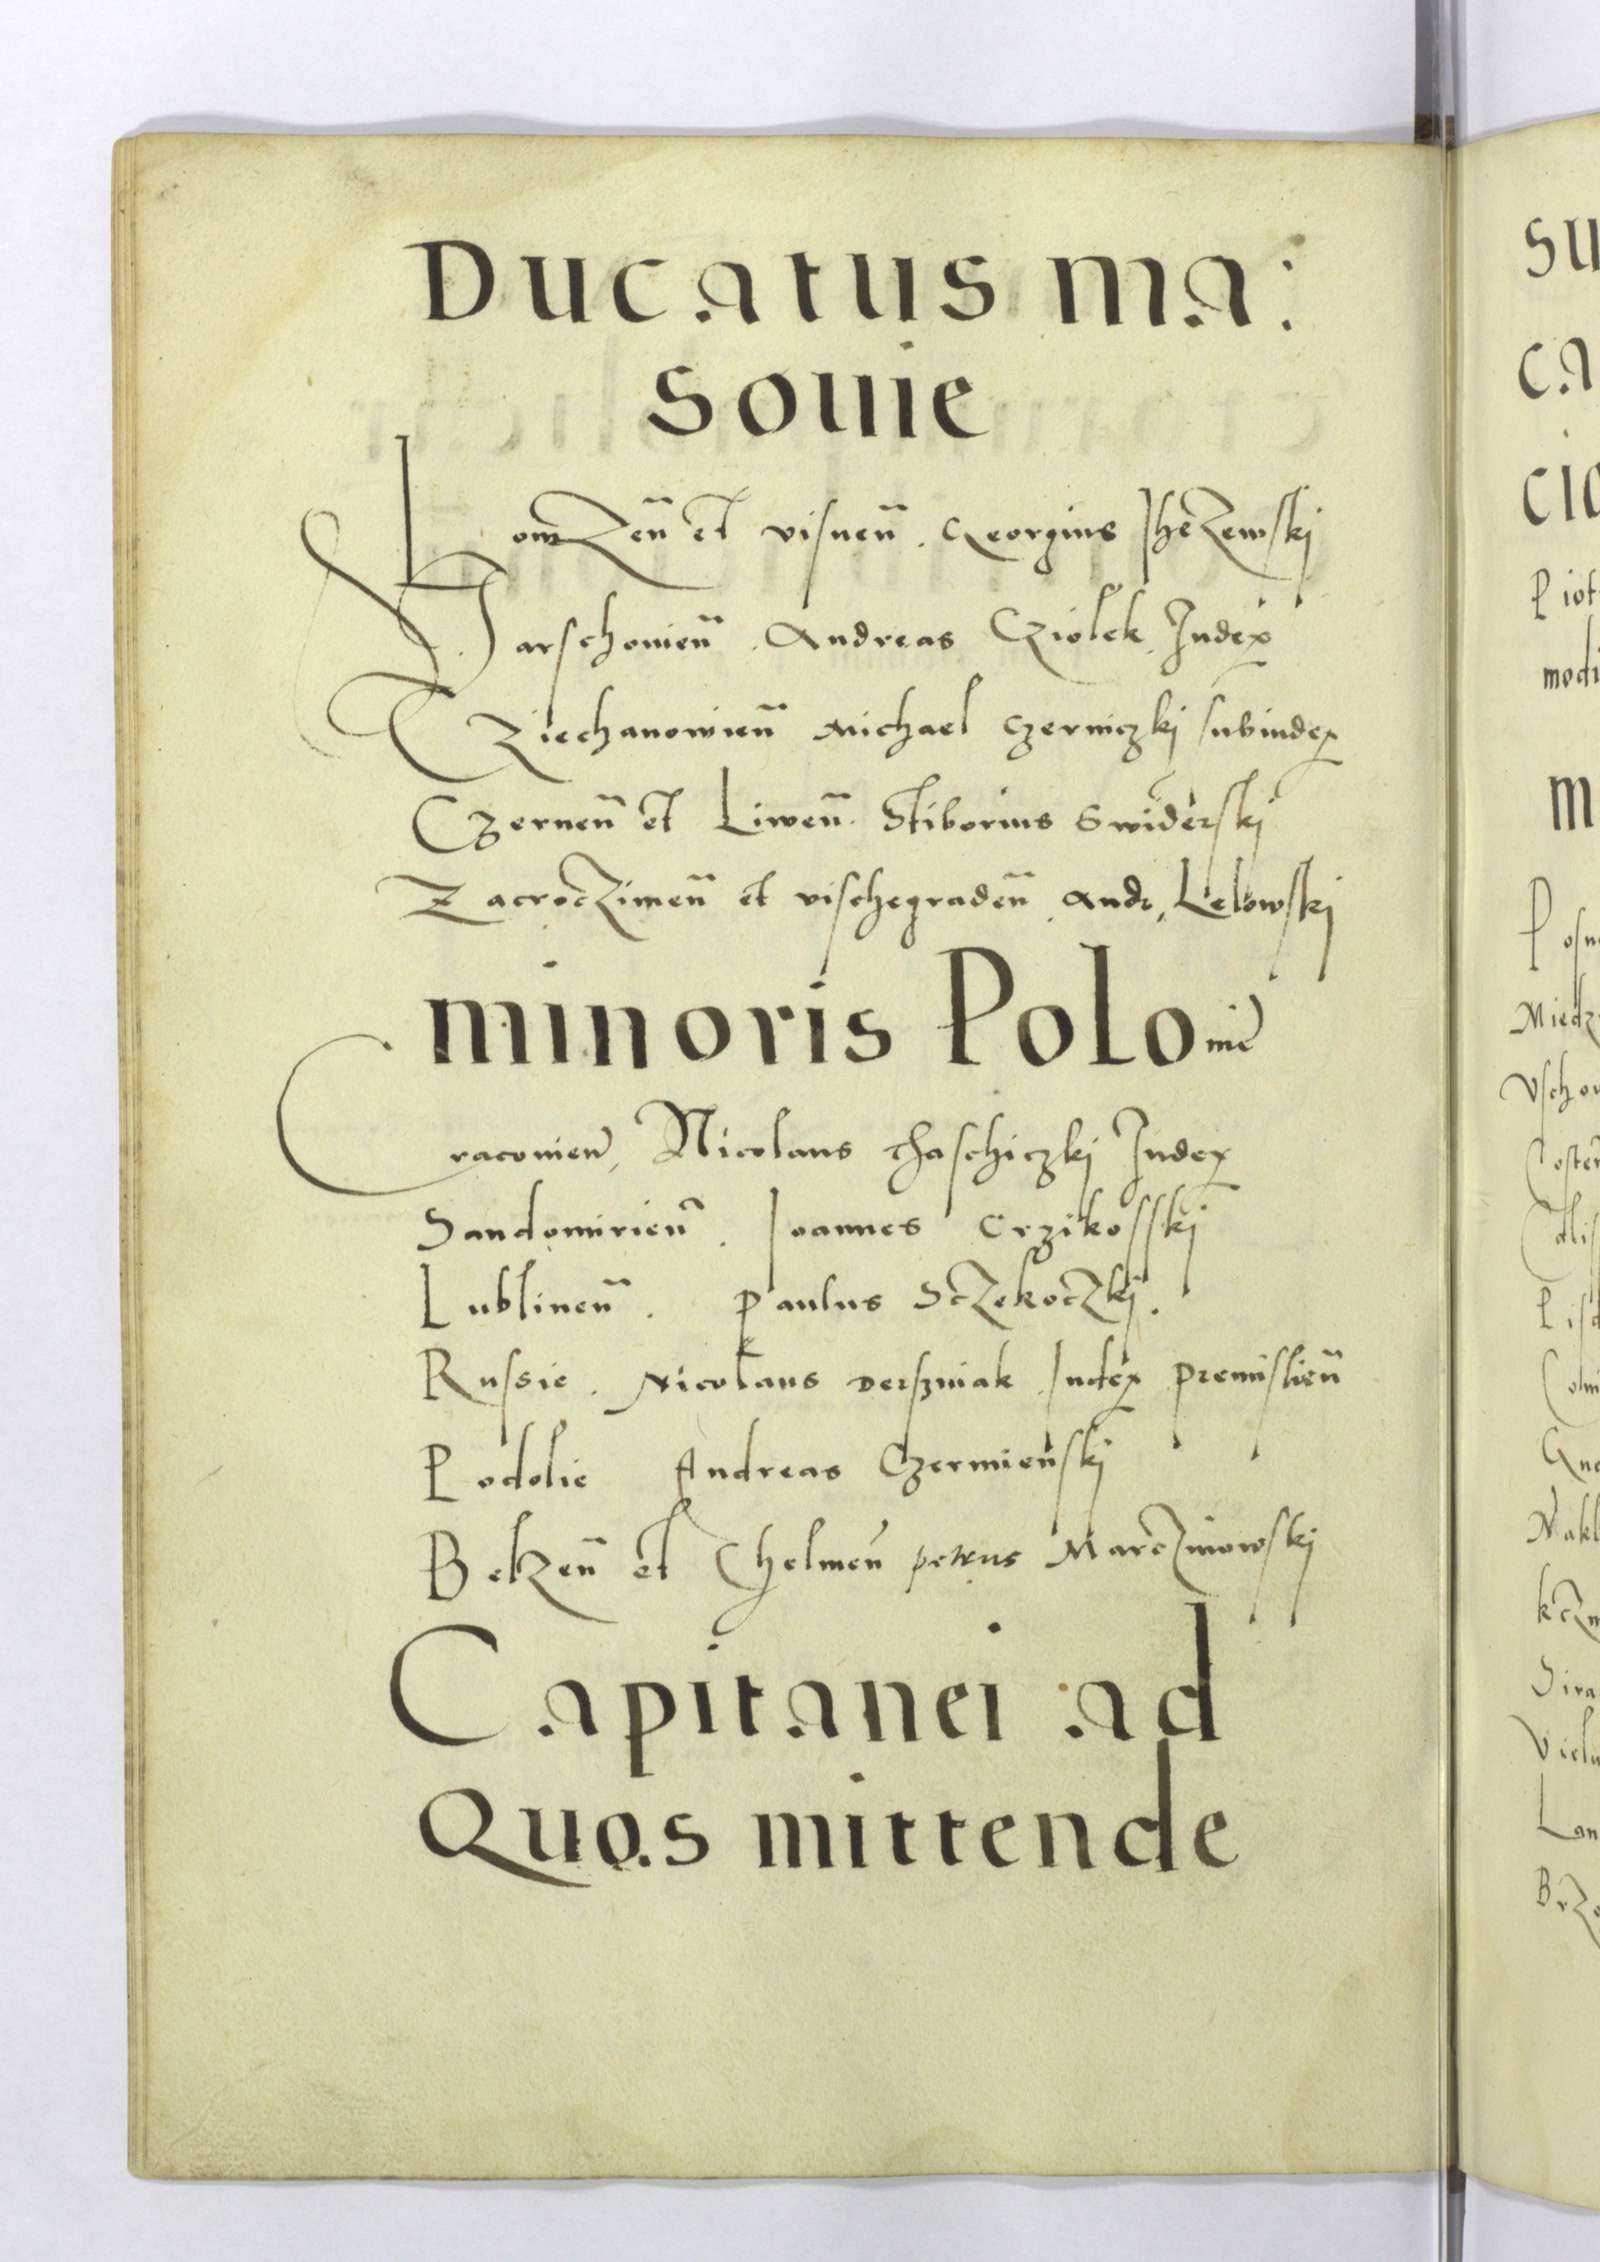 Ducatus ma:
souie
Lomzen̄ et visnen̄. Georgius Ihezewski
Varschouien̄. Andreas Cziolek Iudex
Cziechanowien̄ Michael Czerniczkj subiudex
Czernen̄ et Liwen̄. Stiborius Swiderskj
Zacroczimen̄ et vischegraden̄ Andr. Lelowskj
minoris Polonie
Cracouien̄, Nicolaus thaschiczkj Iudex
Sandomirien̄. Ioannes Crzikosskj
Lublinen̄. Paulus Sczekoczkj.
Russie. Nicolaus Derszniak Iudex Premislien̄
Podolie Andreas Czermienskj
Belzen̄ et Chelmen̄ petrus Marczinowskj
Capitanei ad
Quos mittende
su
ca
cio
Piot
modi
m
Posn
Miedz
Vscho
Costen
Calis
Pisd
Conin
Gne
Nakl
kczn
Sira
Vielu
Lan
Brze